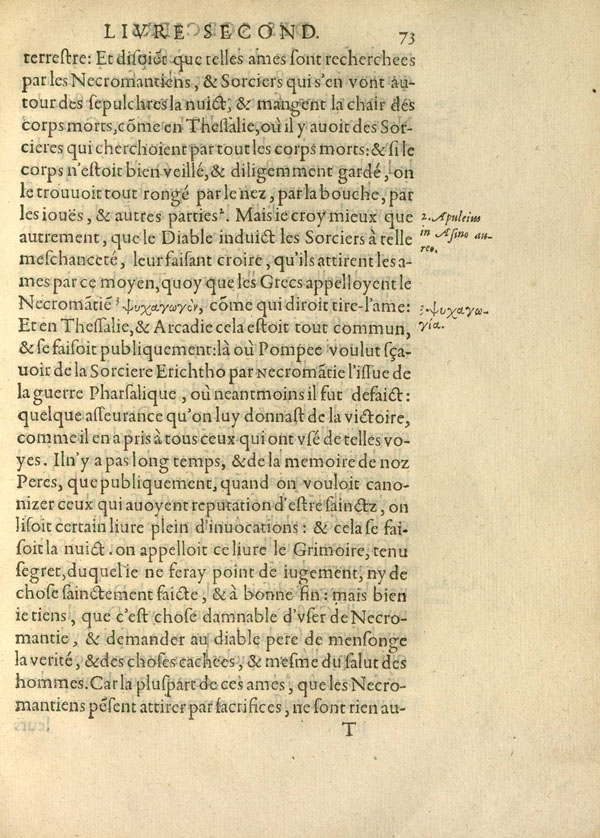 LIVRE SECOND. 73
terrestre: Et disoiẽt que telles ames sont recherchees
par les Necromantiens, & Sorciers qui s'en vont au-
tour des sepulchres la nuict, & mangent la chair des
corps morts, cõme en Thessalie, où il y auoit des Sor-
cieres qui cherchoient par tout les corps morts: & si le
corps n'estoit bien veillé, & diligemment gardé, on
le trouuoit tout rongé par le nez, par la bouche, par
les iouës, & autres parties². Mais ie croy mieux que
autrement, que le Diable induict les Sorciers à telle
meschanceté, leur faisant croire, qu'ils attirent les a-
mes par ce moyen, quoy que les Grecs appelloyent le
Necromãtiẽ ³ ψυχαγωγὸν, cõme qui diroit tire-l'ame:
Et en Thessalie, & Arcadie cela estoit tout commun,
& se faisoit publiquement: là où Pompee voulut sça-
uoir de la Sorciere Erichtho par Necromãtie l'issue de
la guerre Pharsalique, où neantmoins il fut defaict:
quelque asseurance qu'on luy donnast de la victoire,
comme il en a pris à tous ceux qui ont vsé de telles vo-
yes. Il n'y a pas long temps, & de la memoire de noz
Peres, que publiquement, quand on vouloit cano-
nizer ceux qui auoyent reputation d'estre sainctz, on
lisoit certain liure plein d'inuocations: & cela se fai-
soit la nuict. on appelloit ce liure le Grimoire, tenu
segret, duquel ie ne feray point de iugement, ny de
chose sainctement faicte, & à bonne fin: mais bien
ie tiens, que c'est chose damnable d'vser de Necro-
mantie, & demander au diable pere de mensonge
la verité, & des choses cachees, & mesme du salut des
hommes. Car la pluspart de ces ames, que les Necro-
mantiens pẽsent attirer par sacrifices, ne sont rien au-
T
2. Apuleius
in Asino au-
reo.
3. ψυχαγω-
γία.